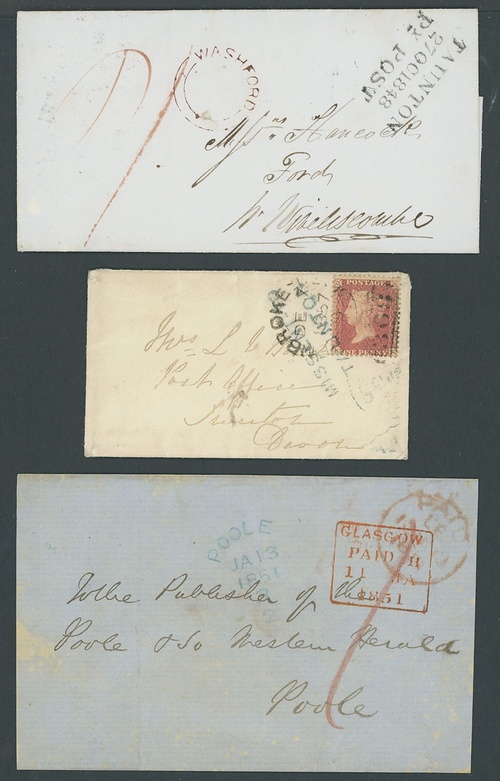 WASHFORD
TAUNTON
27OC1848
Py POST
Hancock
Ford
Nr Wiveliscombe
MISSENT TO
POSTAGE
ONE PENNY
Mrs L
Post Office
Devon
POOLE
JA 13
1851
GLASGOW
PAID H
11 JA
1851
PAID
To the Publisher of the
Poole & So Western Herald
Poole